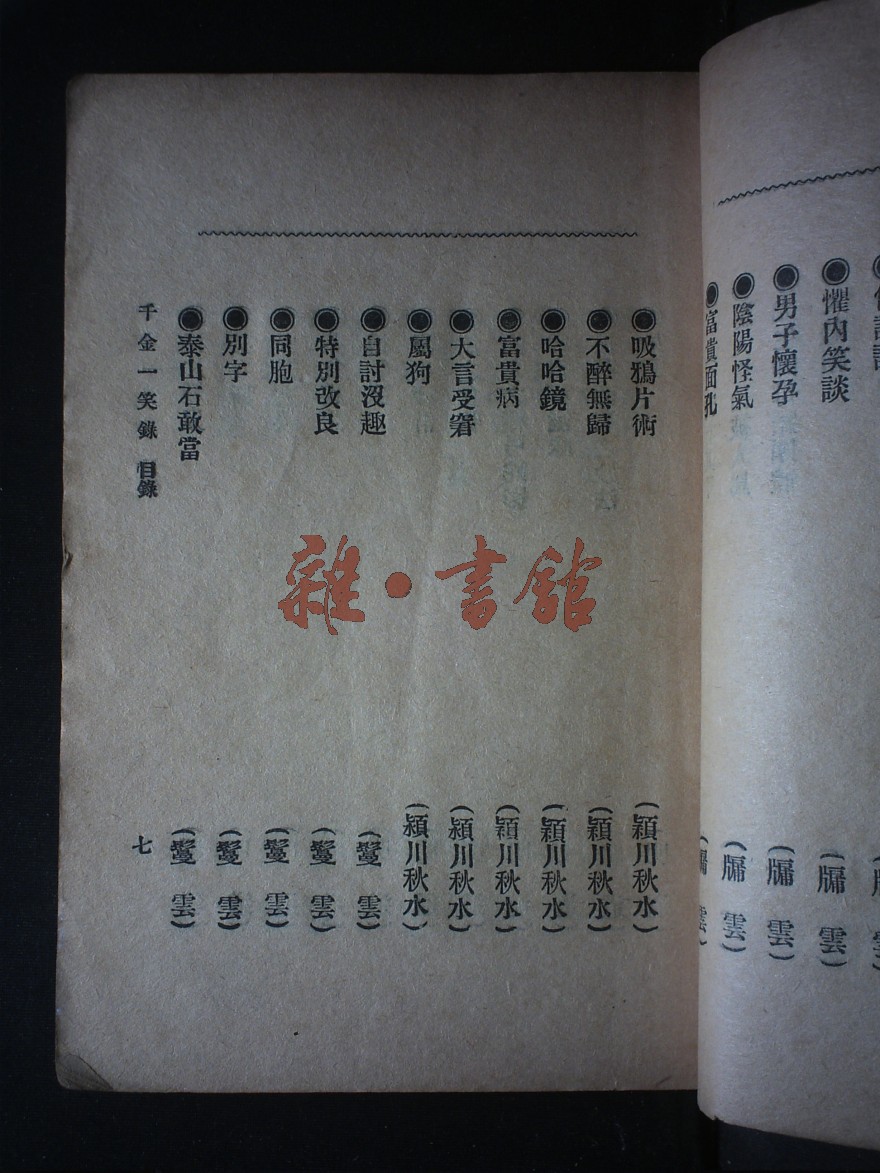 懼內笑談 (牖雲)
男子懷孕 (牖雲)
陰陽怪氣 (牖雲)
富貴面孔 (牖雲)
吸鴉片術 (潁川秋水)
不醉無歸 (潁川秋水)
哈哈鏡 (潁川秋水)
富貴病 (潁川秋水)
大言受窘 (潁川秋水)
屬狗 (潁川秋水)
自討沒趣 (鬘雲)
特別改良 (鬘雲)
同胞 (鬘雲)
別字 (鬘雲)
泰山石敢當 (鬘雲)
千金一笑錄 目錄 七
雜·書館